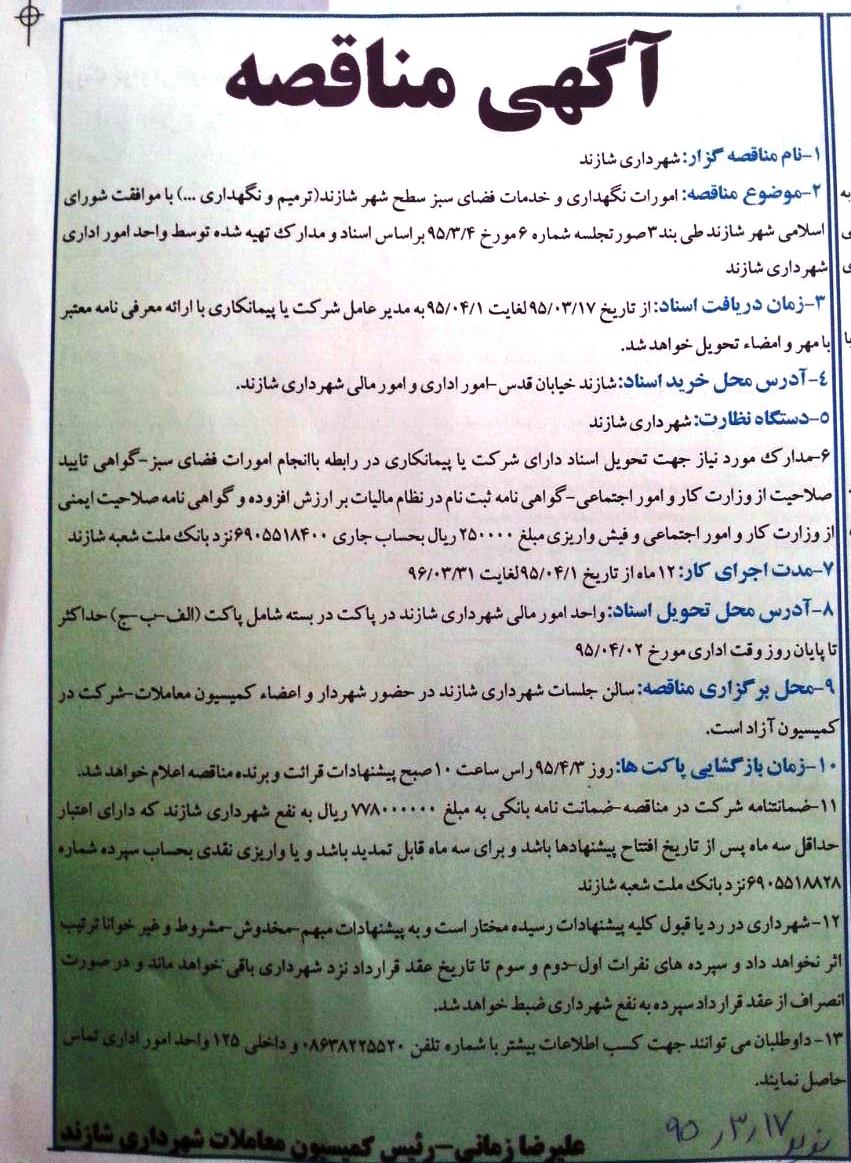 آگهی مناقصه
۱-نام مناقصه گزار: شهرداری شازند
۲-موضوع مناقصه: امورات نگهداری و خدمات فضای سبز سطح شهر شازند(ترمیم و نگهداری ...) با موافقت شورای
اسلامی شهر شازند طی بند۳صورتجلسه شماره ۶مورخ ۹۵/۳/۴ براساس اسناد و مدارک تهیه شده توسط واحد امور اداری
شهرداری شازند
۳-زمان دریافت اسناد: از تاریخ ۹۵/۰۳/۱۷لغایت ۹۵/۰۴/۱به مدیر عامل شرکت یا پیمانکاری با ارائه معرفی نامه معتبر
با مهر و امضاء تحویل خواهد شد.
۴-آدرس محل خرید اسناد:شازند خیابان قدس-امور اداری و امور مالی شهرداری شازند.
۵-دستگاه نظارت: شهرداری شازند
۶-مدارک مورد نیاز جهت تحویل اسناد دارای شرکت یا پیمانکاری در رابطه باانجام امورات فضای سبز-گواهی تایید
صلاحیت از وزارت کار و امور اجتماعی-گواهی نامه ثبت نام در نظام مالیات بر ارزش افزوده و گواهی نامه صلاحیت ایمنی
از وزارت کار و امور اجتماعی و فیش واریزی مبلغ ۲۵۰۰۰۰ ریال بحساب جاری ۶۹۰۵۵۱۸۴۰۰نزد بانک ملت شعبه شازند
۷-مدت اجرای کار: ۱۲ماه از تاریخ ۹۵/۰۴/۱لغایت ۹۶/۰۳/۳۱
۸-آدرس محل تحویل اسناد:واحد امور مالی شهرداری شازند در پاکت در بسته شامل پاکت (الف-ب-ج) حداکثر
تا پایان روز وقت اداری مورخ ۹۵/۰۴/۰۲
۹-محل برگزاری مناقصه: سالن جلسات شهرداری شازند در حضور شهردار و اعضاء کمیسیون معاملات-شرکت در
کمیسیون آزاد است.
۱۰-زمان بازگشایی پاکت ها: روز ۹۵/۴/۳ راس ساعت ۱۰صبح پیشنهادات قرائت و برنده مناقصه اعلام خواهد شد.
۱۱-ضمانتنامه شرکت در مناقصه-ضمانت نامه بانکی به مبلغ ۷۷۸۰۰۰۰۰۰ ریال به نفع شهرداری شازند که دارای اعتبار
حداقل سه ماه پس از تاریخ افتتاح پیشنهادها باشد و برای سه ماه قابل تمدید باشد و یا واریزی نقدی بحساب سپرده شماره
۶۹۰۵۵۱۸۸۲۸نزد بانک ملت شعبه شازند
۱۲-شهرداری در رد یا قبول کلیه پیشنهادات رسیده مختار است و به پیشنهادات مبهم-مخدوش-مشروط و غیر خوانا ترتیب
اثر نخواهد داد و سپرده های نفرات اول-دوم و سوم تا تاریخ عقد قرارداد نزد شهرداری باقی خواهد ماند و در صورت
انصراف از عقد قرارداد سپرده به نفع شهرداری ضبط خواهد شد.
۱۳- داوطلبان می توانند جهت کسب اطلاعات بیشتر با شماره تلفن ۰۸۶۳۸۲۲۵۵۲۰ و داخلی ۱۲۵ واحد امور اداری تماس
حاصل نمایند.
علیرضا زمانی-رئیس کمیسیون معاملات شهرداری شازند
۹۵/۳/۱۷